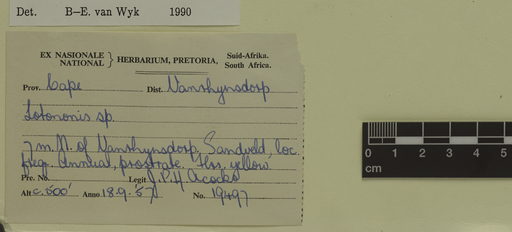 Det. B–E. van Wyk 1990
EX NASIONALE
NATIONAL } HERBARIUM, PRETORIA, Suid-Afrika.
South Africa.
Prov. Cape Dist. Vanrhynsdorp
Lotononis sp.
7 m. N. of Vanrhynsdorp, Sandveld, loc.
freq. Annual, prostrate. Flrs. yellow.
Pre. No. Legit J.P.H. Acocks
Alt c. 500' Anno 18.9.'57 No. 19497
0 1 2 3 4 5
cm